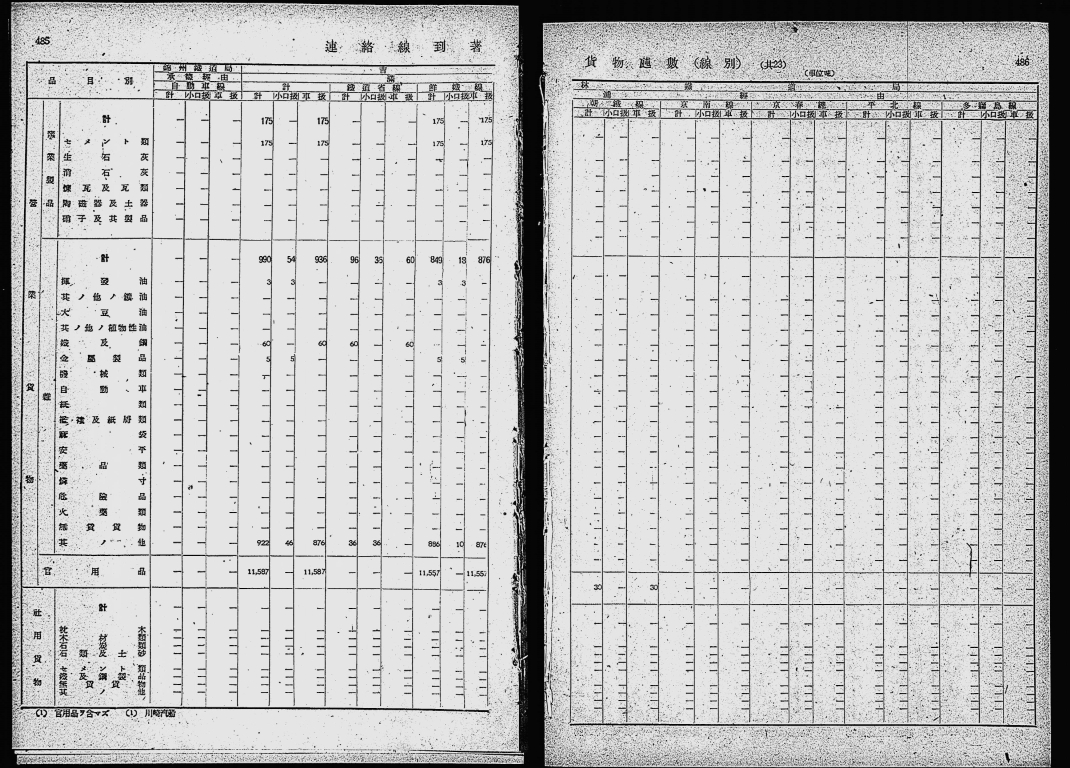 485
連絡線到著
品目別
錦州鐵道局
承鐵經由
自動車線
計 小口扱 車扱
計
鐵道省線
鮮鐵線
計 小口扱 車扱 計 小口扱 車扱 計 小口扱 車扱
計 — — — 175 — 175 — — — 175 — 175
セメント類 — — — 175 — 175 — — — 175 — 175
生石灰 — — — — — — — — — — — —
消石灰 — — — — — — — — — — — —
煉瓦及瓦類 — — — — — — — — — — — —
陶磁器及土器 — — — — — — — — — — — —
硝子及其製品 — — — — — — — — — — — —
計 — — — 990 54 936 96 36 60 18 876
揮發油 — — — 3 3 — — — — 3 3 —
其ノ他ノ鑛油 — — — — — — — — — — — —
大豆油 — — — — — — — — — — — —
其ノ他ノ植物性油 — — — — — — — — — — — —
鐵及鋼 — — — 60 — 60 60 — 60 — — —
金屬製品 — — — 5 5 — — — — 5 5 —
機械類 — — — — — — — — — — — —
自動車 — — — — — — — — — — — —
紙類 — — — — — — — — — — — —
麻袋 — — — — — — — — — — — —
安平 — — — — — — — — — — — —
藥品類 — — — — — — — — — — — —
燐寸 — — — — — — — — — — — —
危險品 — — — — — — — — — — — —
火藥類 — — — — — — — — — — — —
無賃貨物 — — — — — — — — — — — —
其ノ他 — — — 922 46 876 36 36 — 886 10 876
官用品 — — — 11,587 — 11,587 — — — 11,557 — 11,557
計 — — — — — — — — — — — —
枕木
木材類
石炭類
石類及土砂
セメント類
鐵及鋼製品
無賃貨物
其ノ他
社用貨物
營業貨物
窯業製品
雜
(1) 官用品ヲ含マズ (1) 川崎汽船
貨物噸數(線別) (共23)
(單位噸)
486
林鐵道局
經由
朝鐵線 京南線 京春鐵 平北線 多獅島線
計 小口扱 車扱 計 小口扱 車扱 計 小口扱 車扱 計 小口扱 車扱 計 小口扱 車扱
30 — 30